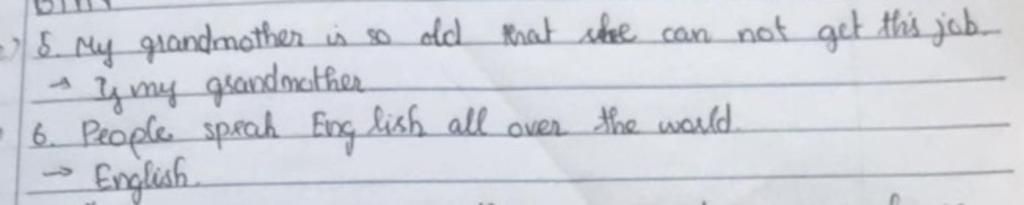 5. My grandmother is so old that she can not get this job
→ If my grandmother
6. People speak Eng lish all over the world.
→ English.